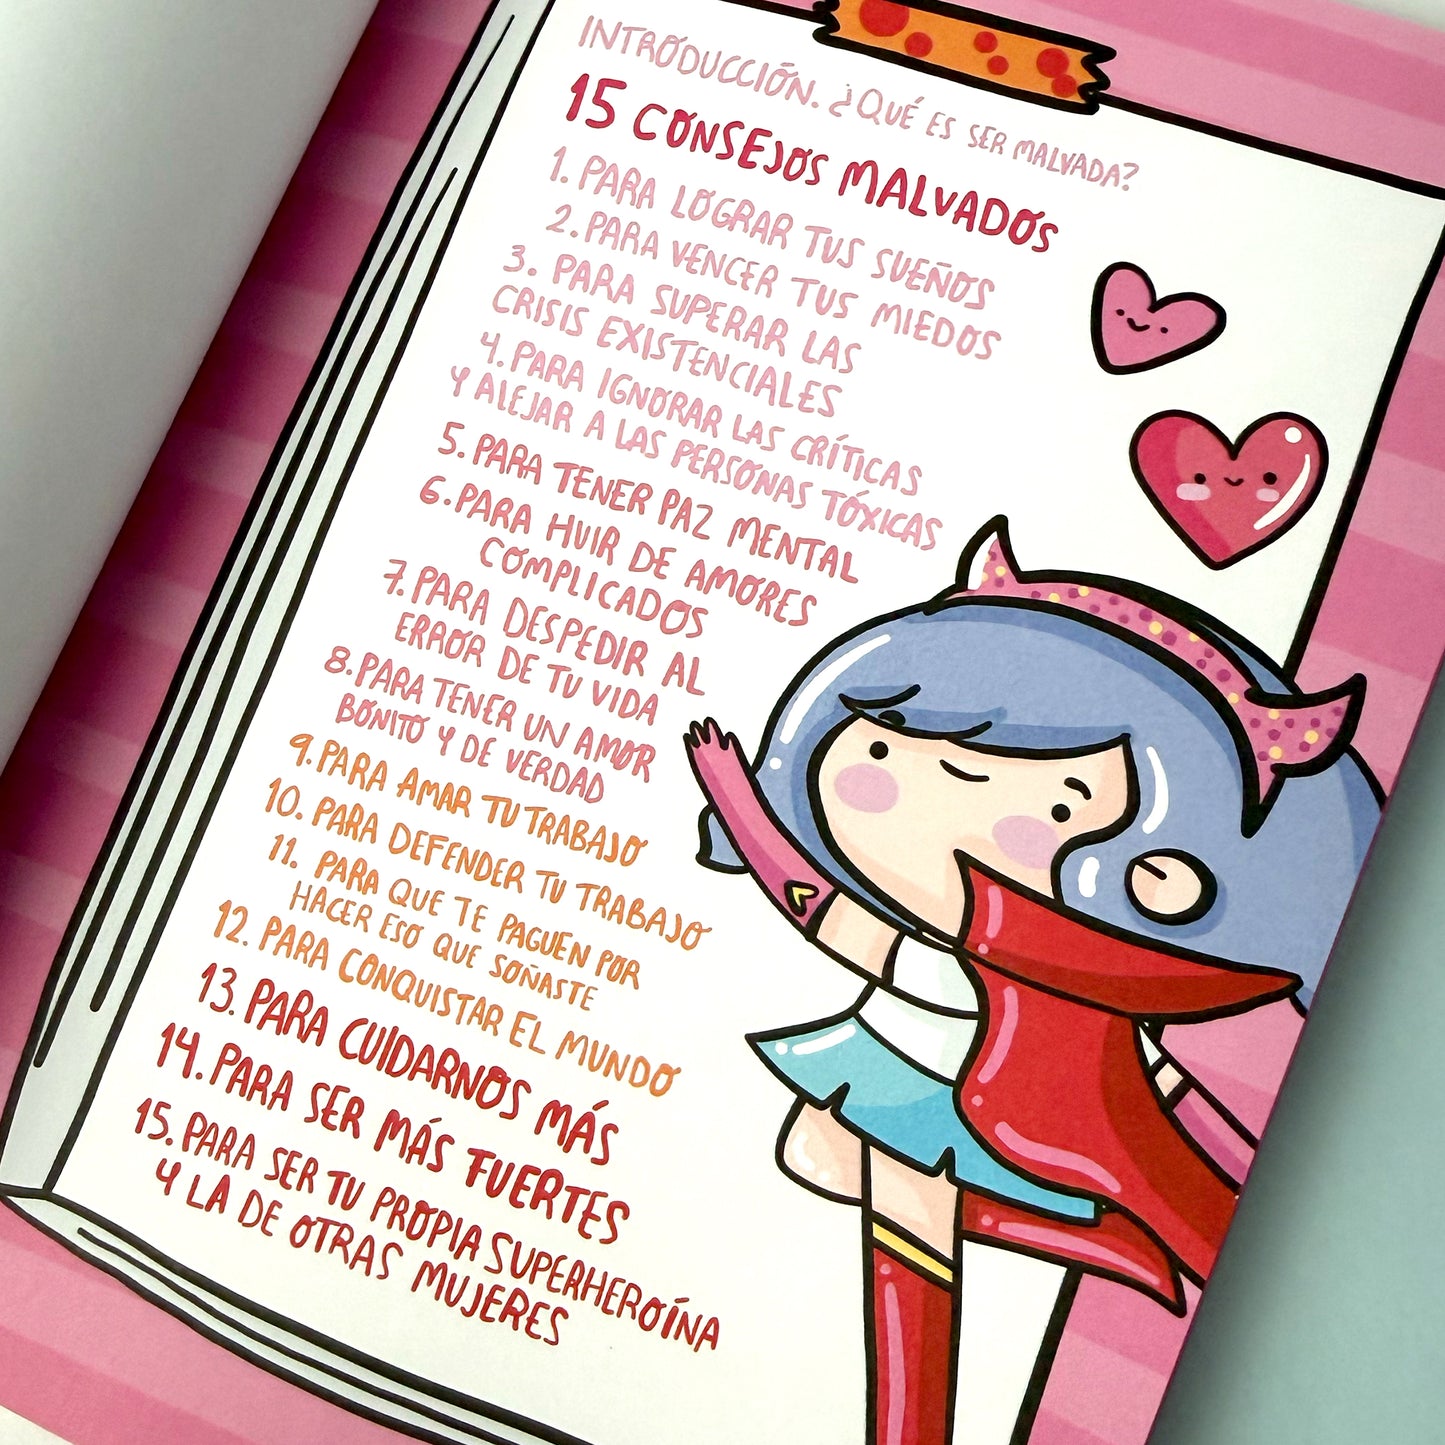 INTRODUCCIÓN. ¿QUÉ ES SER MALVADA?
15 CONSEJOS MALVADOS
1. PARA LOGRAR TUS SUEÑOS
2. PARA VENCER TUS MIEDOS
3. PARA SUPERAR LAS
CRISIS EXISTENCIALES
4. PARA IGNORAR LAS CRÍTICAS
Y ALEJAR A LAS PERSONAS TÓXICAS
5. PARA TENER PAZ MENTAL
6. PARA HUIR DE AMORES
COMPLICADOS
7. PARA DESPEDIR AL
ERROR DE TU VIDA
8. PARA TENER UN AMOR
BONITO Y DE VERDAD
9. PARA AMAR TU TRABAJO
10. PARA DEFENDER TU TRABAJO
11. PARA QUE TE PAGUEN POR
HACER ESO QUE SOÑASTE
12. PARA CONQUISTAR EL MUNDO
13. PARA CUIDARNOS MÁS
14. PARA SER MÁS FUERTES
15. PARA SER TU PROPIA SUPERHEROÍNA
Y LA DE OTRAS MUJERES